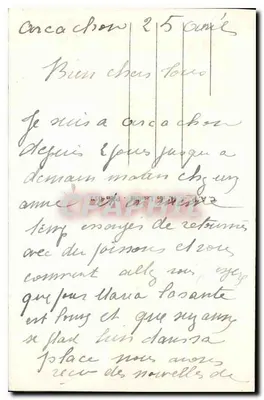 arcachon 25 avril
Bien chers tous
Je suis a arcachon
depuis 2 jours jusqu a
demain matin chez un
temp
avec du poissons et vous
comment allez vous
que pour Maria la sante
est bonne et que suzanne
se plait bien dans sa
place nous avons
reçu des nouvelles de